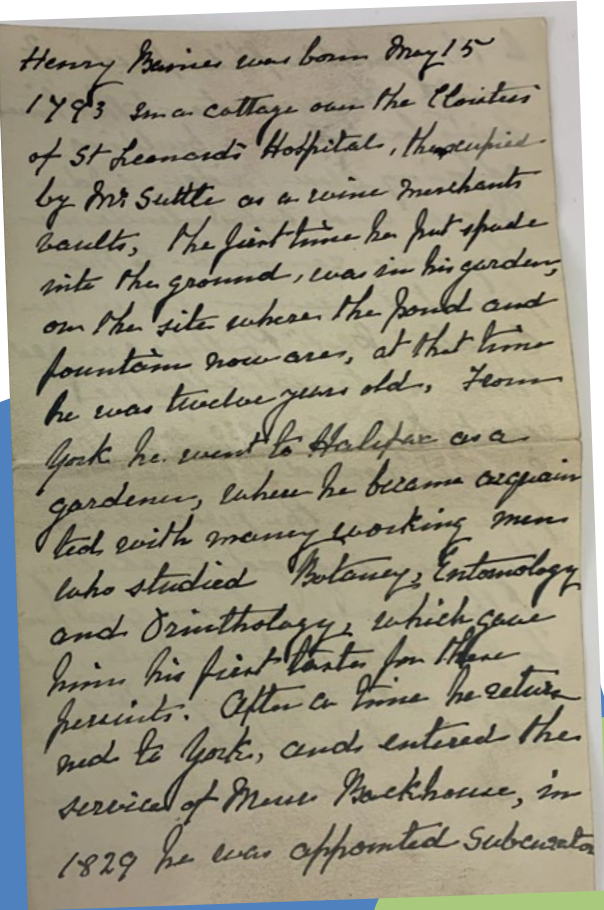 Henry Baines was born May 15
1793 in a cottage over the Cloisters
of St Leonards Hospital, then occupied
by Mr Suttle as a wine merchants
vaults, the first time he put spade
into the ground, was in his garden,
on the site where the pond and
fountain now are, at that time
he was twelve years old, From
York he went to Halifax as a
gardener, where he became acquain
ted with maney working men
who studied Botaney, Entomology
and Orinthology, which gave
him his first tastes for these
persuits. After a time he retur
ned to York, and entered the
service of Messrs Backhouse, in
1829 he was appointed Subcurator